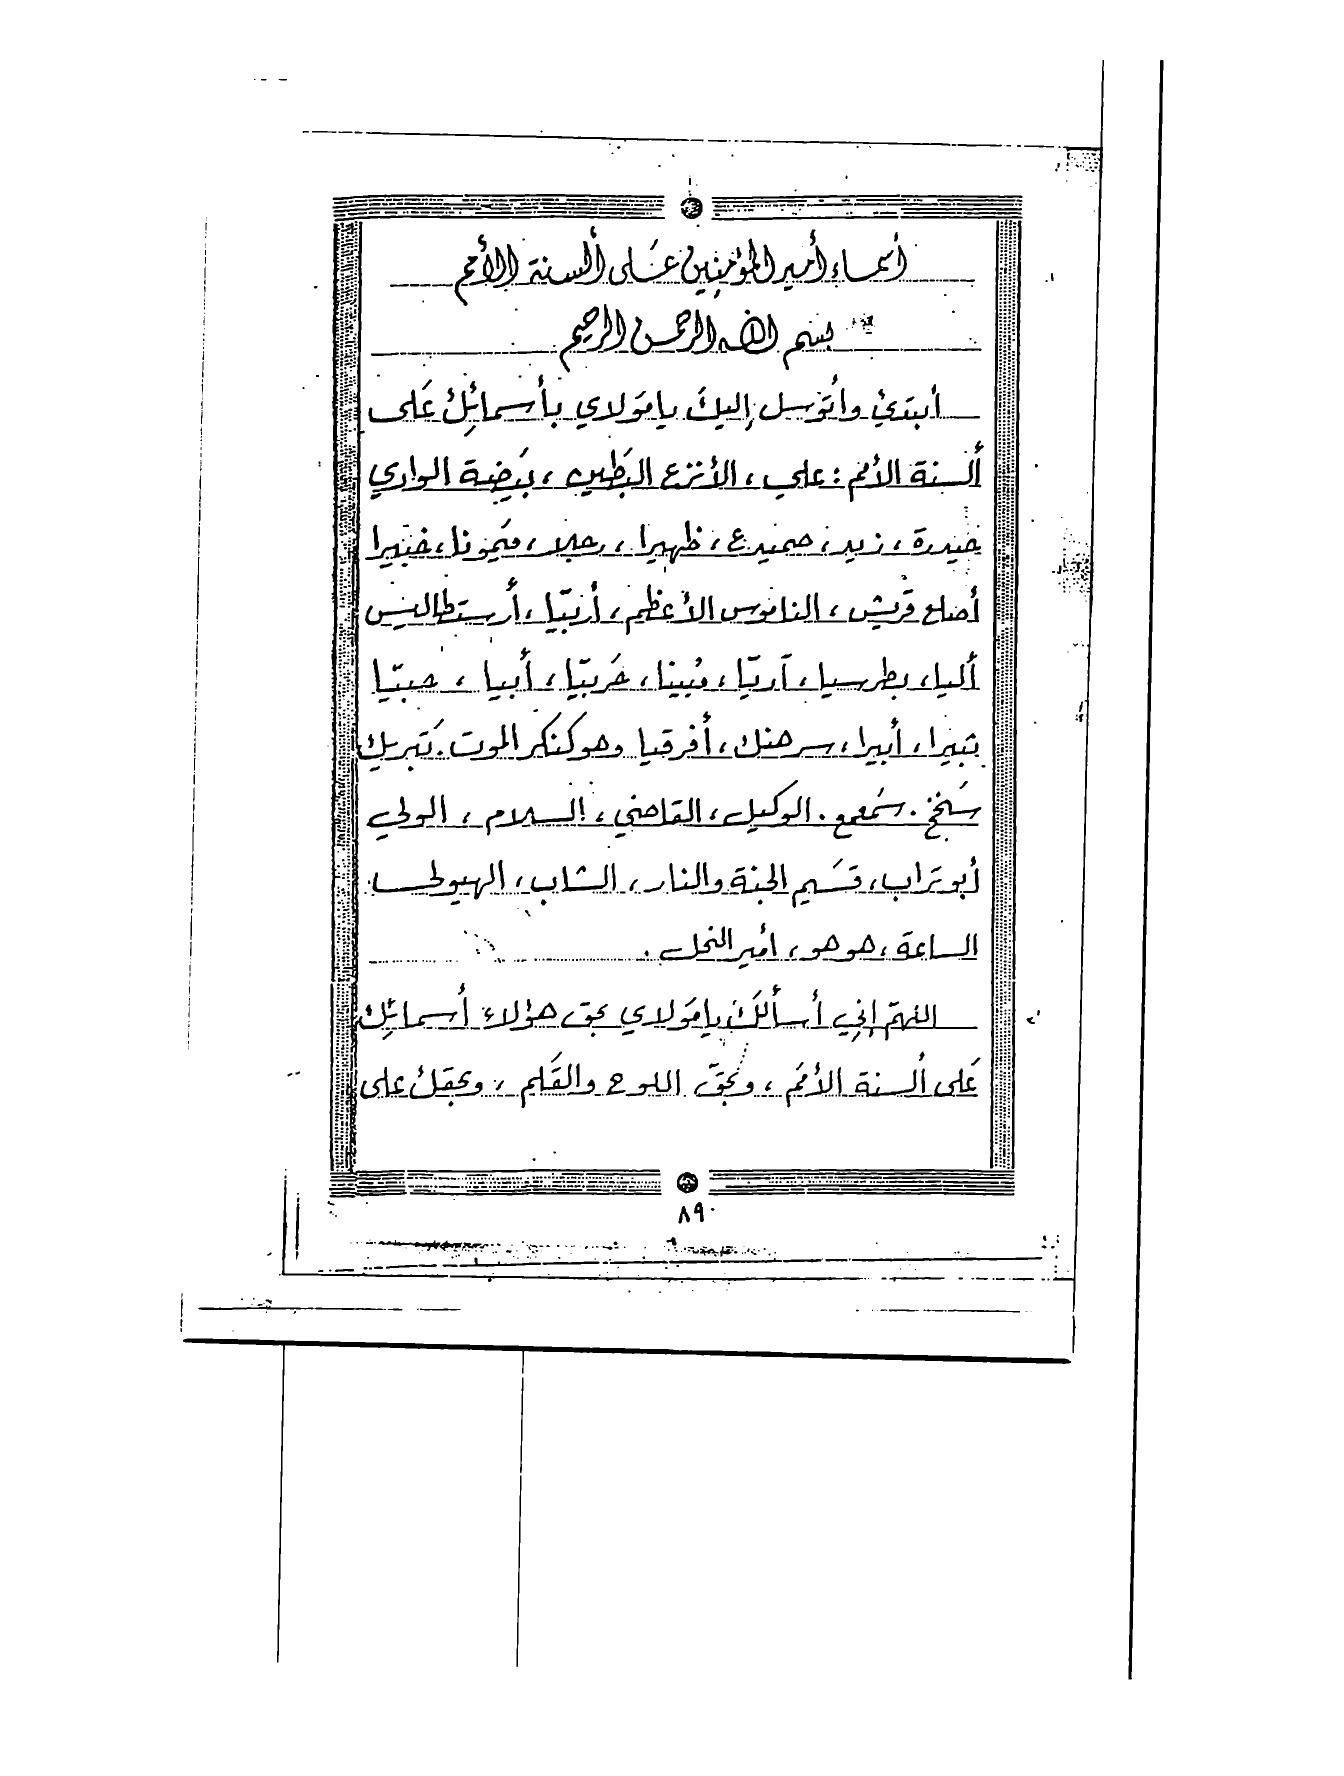 أسماء أمير المؤمنين عَلى ألسنة الأمم
بسم الله الرحمن الرحيم
أبتدئ وأتوسل إليك يا مَولاي بأسمائِك عَلى
ألسنة الأمم : علي ، الأنزع البَطين ، بَيضة الوادي
حيدرة ، زيد ، صميدع ، ظهيرا ، رجلا ، مَيمونا ، خَبيرا
أصلع قريش ، الناموس الأعظم ، أربيّا ، أرستطاليس
أليا ، بطرسيا ، آريّا ، مُبينا ، حَربيّا ، أبيا ، حبيّا
بتيرا ، أبيرا ، سرهنك ، أفرقيا وهو كنكر الموت . تَبريك
سَخخ . سَمعمع . الوكيل ، القاضي ، السلام ، الولي
أبو تراب ، قسَيم الجنة والنار ، الشاب ، الهيولى
الساعة ، هو هو ، أمير النحل .
اللهمّ إني أسألكَ يا مَولاي بحق هؤلاء أسمائِك
عَلى ألسنة الأمَم ، وبحقّ اللوح والقَلم ، وبحقك على
٨٩